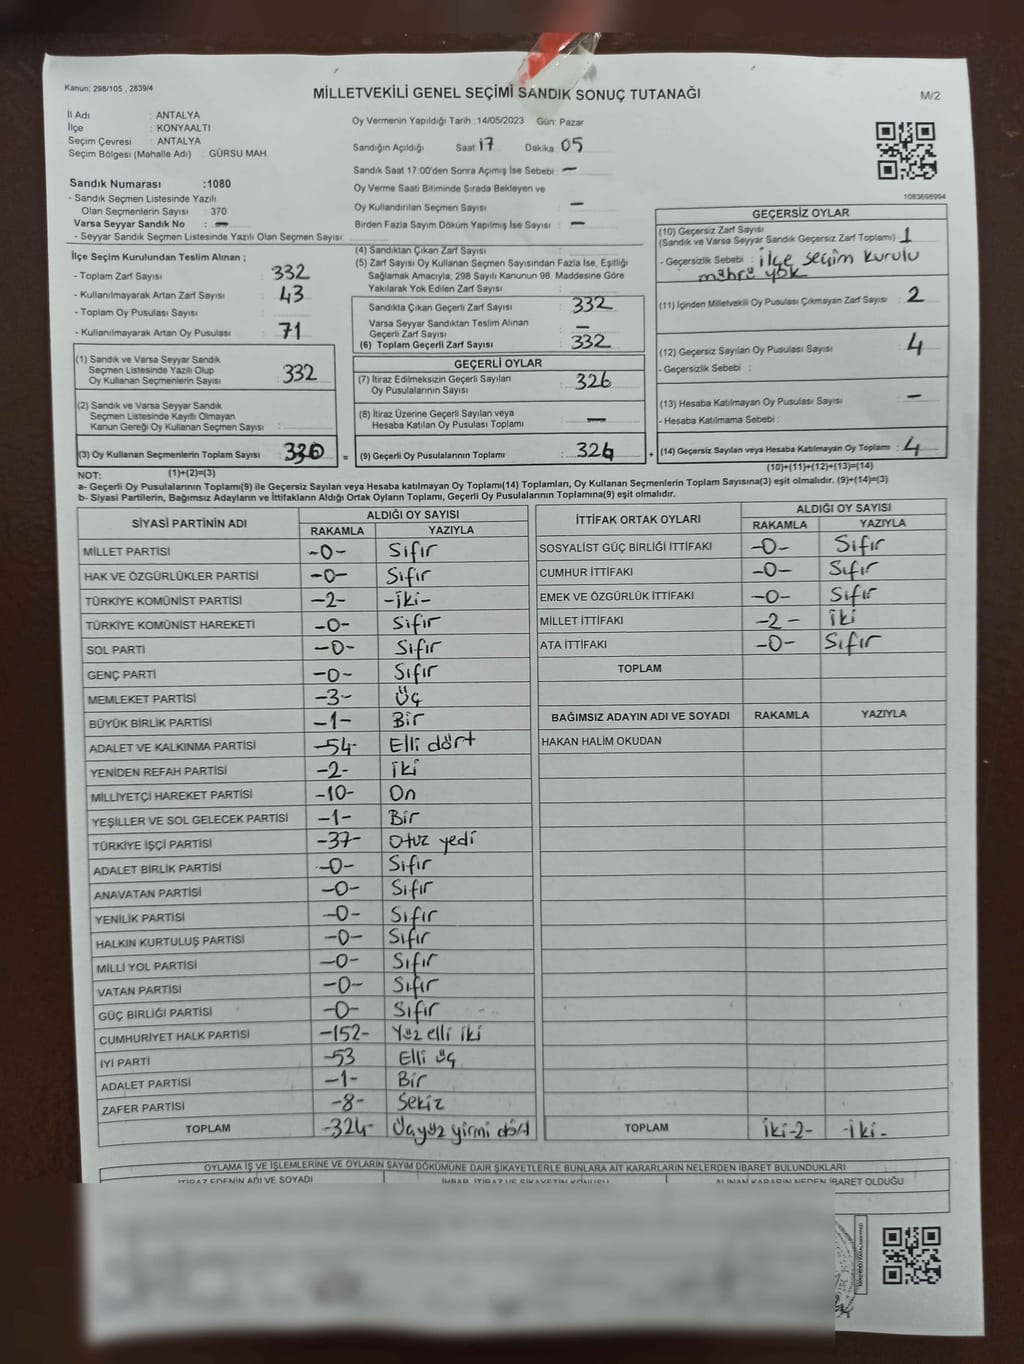 Kanun; 298/105 , 2839/4
MİLLETVEKİLİ GENEL SEÇİMİ SANDIK SONUÇ TUTANAĞI
M/2
İl Adı : ANTALYA
İlçe : KONYAALTI
Seçim Çevresi : ANTALYA
Seçim Bölgesi (Mahalle Adı) : GÜRSU MAH.
Oy Vermenin Yapıldığı Tarih : 14/05/2023 Gün: Pazar
Sandığın Açıldığı Saat: 17 Dakika: 05
Sandık Saat 17:00'den Sonra Açımış İse Sebebi : —
Oy Verme Saati Bitiminde Sırada Bekleyen ve
Oy Kullandırılan Seçmen Sayısı : —
Birden Fazla Sayım Döküm Yapılmış İse Sayısı : —
1083696994
Sandık Numarası :1080
- Sandık Seçmen Listesinde Yazılı
Olan Seçmenlerin Sayısı : 370
Varsa Seyyar Sandık No : —
- Seyyar Sandık Seçmen Listesinde Yazılı Olan Seçmen Sayısı:
İlçe Seçim Kurulundan Teslim Alınan ;
- Toplam Zarf Sayısı : 332
- Kullanılmayarak Artan Zarf Sayısı : 43
- Toplam Oy Pusulası Sayısı :
- Kullanılmayarak Artan Oy Pusulası : 71
(1) Sandık ve Varsa Seyyar Sandık
Seçmen Listesinde Yazılı Olup
Oy Kullanan Seçmenlerin Sayısı : 332
(2) Sandık ve Varsa Seyyar Sandık
Seçmen Listesinde Kayıtlı Olmayan
Kanun Gereği Oy Kullanan Seçmen Sayısı :
(3) Oy Kullanan Seçmenlerin Toplam Sayısı : 330 =
(1)+(2)=(3)
(4) Sandıktan Çıkan Zarf Sayısı :
(5) Zarf Sayısı Oy Kullanan Seçmen Sayısından Fazla İse, Eşitliği
Sağlamak Amacıyla; 298 Sayılı Kanunun 98. Maddesine Göre
Yakılarak Yok Edilen Zarf Sayısı :
Sandıkta Çıkan Geçerli Zarf Sayısı : 332
Varsa Seyyar Sandıktan Teslim Alınan
Geçerli Zarf Sayısı : —
(6) Toplam Geçerli Zarf Sayısı : 332
GEÇERLİ OYLAR
(7) İtiraz Edilmeksizin Geçerli Sayılan
Oy Pusulalarının Sayısı : 326
(8) İtiraz Üzerine Geçerli Sayılan veya
Hesaba Katılan Oy Pusulası Toplamı : —
(9) Geçerli Oy Pusulalarının Toplamı : 326 +
GEÇERSİZ OYLAR
(10) Geçersiz Zarf Sayısı
(Sandık ve Varsa Seyyar Sandık Geçersiz Zarf Toplamı) : 1
- Geçersizlik Sebebi : ilçe seçim kurulu
mührü yok
(11) İçinden Milletvekili Oy Pusulası Çıkmayan Zarf Sayısı : 2
(12) Geçersiz Sayılan Oy Pusulası Sayısı : 4
- Geçersizlik Sebebi :
(13) Hesaba Katılmayan Oy Pusulası Sayısı : —
- Hesaba Katılmama Sebebi :
(14) Geçersiz Sayılan veya Hesaba Katılmayan Oy Toplamı : 4
(10)+(11)+(12)+(13)=(14)
NOT:
a- Geçerli Oy Pusulalarının Toplamı(9) ile Geçersiz Sayılan veya Hesaba katılmayan Oy Toplamı(14) Toplamları, Oy Kullanan Seçmenlerin Toplam Sayısına(3) eşit olmalıdır. (9)+(14)=(3)
b- Siyasi Partilerin, Bağımsız Adayların ve İttifakların Aldığı Ortak Oyların Toplamı, Geçerli Oy Pusulalarının Toplamına(9) eşit olmalıdır.
SİYASİ PARTİNİN ADI ALDIĞI OY SAYISI
RAKAMLA YAZIYLA
MİLLET PARTİSİ -0- Sıfır
HAK VE ÖZGÜRLÜKLER PARTİSİ -0- Sıfır
TÜRKİYE KOMÜNİST PARTİSİ -2- -iki-
TÜRKİYE KOMÜNİST HAREKETİ -0- Sıfır
SOL PARTİ -0- Sıfır
GENÇ PARTİ -0- Sıfır
MEMLEKET PARTİSİ -3- Üç
BÜYÜK BİRLİK PARTİSİ -1- Bir
ADALET VE KALKINMA PARTİSİ -54- Elli dört
YENİDEN REFAH PARTİSİ -2- iki
MİLLİYETÇİ HAREKET PARTİSİ -10- On
YEŞİLLER VE SOL GELECEK PARTİSİ -1- Bir
TÜRKİYE İŞÇİ PARTİSİ -37- Otuz yedi
ADALET BİRLİK PARTİSİ -0- Sıfır
ANAVATAN PARTİSİ -0- Sıfır
YENİLİK PARTİSİ -0- Sıfır
HALKIN KURTULUŞ PARTİSİ -0- Sıfır
MİLLİ YOL PARTİSİ -0- Sıfır
VATAN PARTİSİ -0- Sıfır
GÜÇ BİRLİĞİ PARTİSİ -0- Sıfır
CUMHURİYET HALK PARTİSİ -152- Yüz elli iki
İYİ PARTİ -53 Elli üç
ADALET PARTİSİ -1- Bir
ZAFER PARTİSİ -8- Sekiz
TOPLAM -324- Üçyüz yirmi dört
İTTİFAK ORTAK OYLARI ALDIĞI OY SAYISI
RAKAMLA YAZIYLA
SOSYALİST GÜÇ BİRLİĞİ İTTİFAKI -0- Sıfır
CUMHUR İTTİFAKI -0- Sıfır
EMEK VE ÖZGÜRLÜK İTTİFAKI -0- Sıfır
MİLLET İTTİFAKI -2- iki
ATA İTTİFAKI -0- Sıfır
TOPLAM
BAĞIMSIZ ADAYIN ADI VE SOYADI RAKAMLA YAZIYLA
HAKAN HALİM OKUDAN
TOPLAM iki-2- -iki-
OYLAMA İŞ VE İŞLEMLERİNE VE OYLARIN SAYIM DÖKÜMÜNE DAİR ŞİKAYETLERLE BUNLARA AİT KARARLARIN NELERDEN İBARET BULUNDUKLARI
İTİRAZ EDENİN ADI VE SOYADI İHBAR, İTİRAZ VE ŞİKAYETİN KONUSU ALINAN KARARIN NEDEN İBARET OLDUĞU